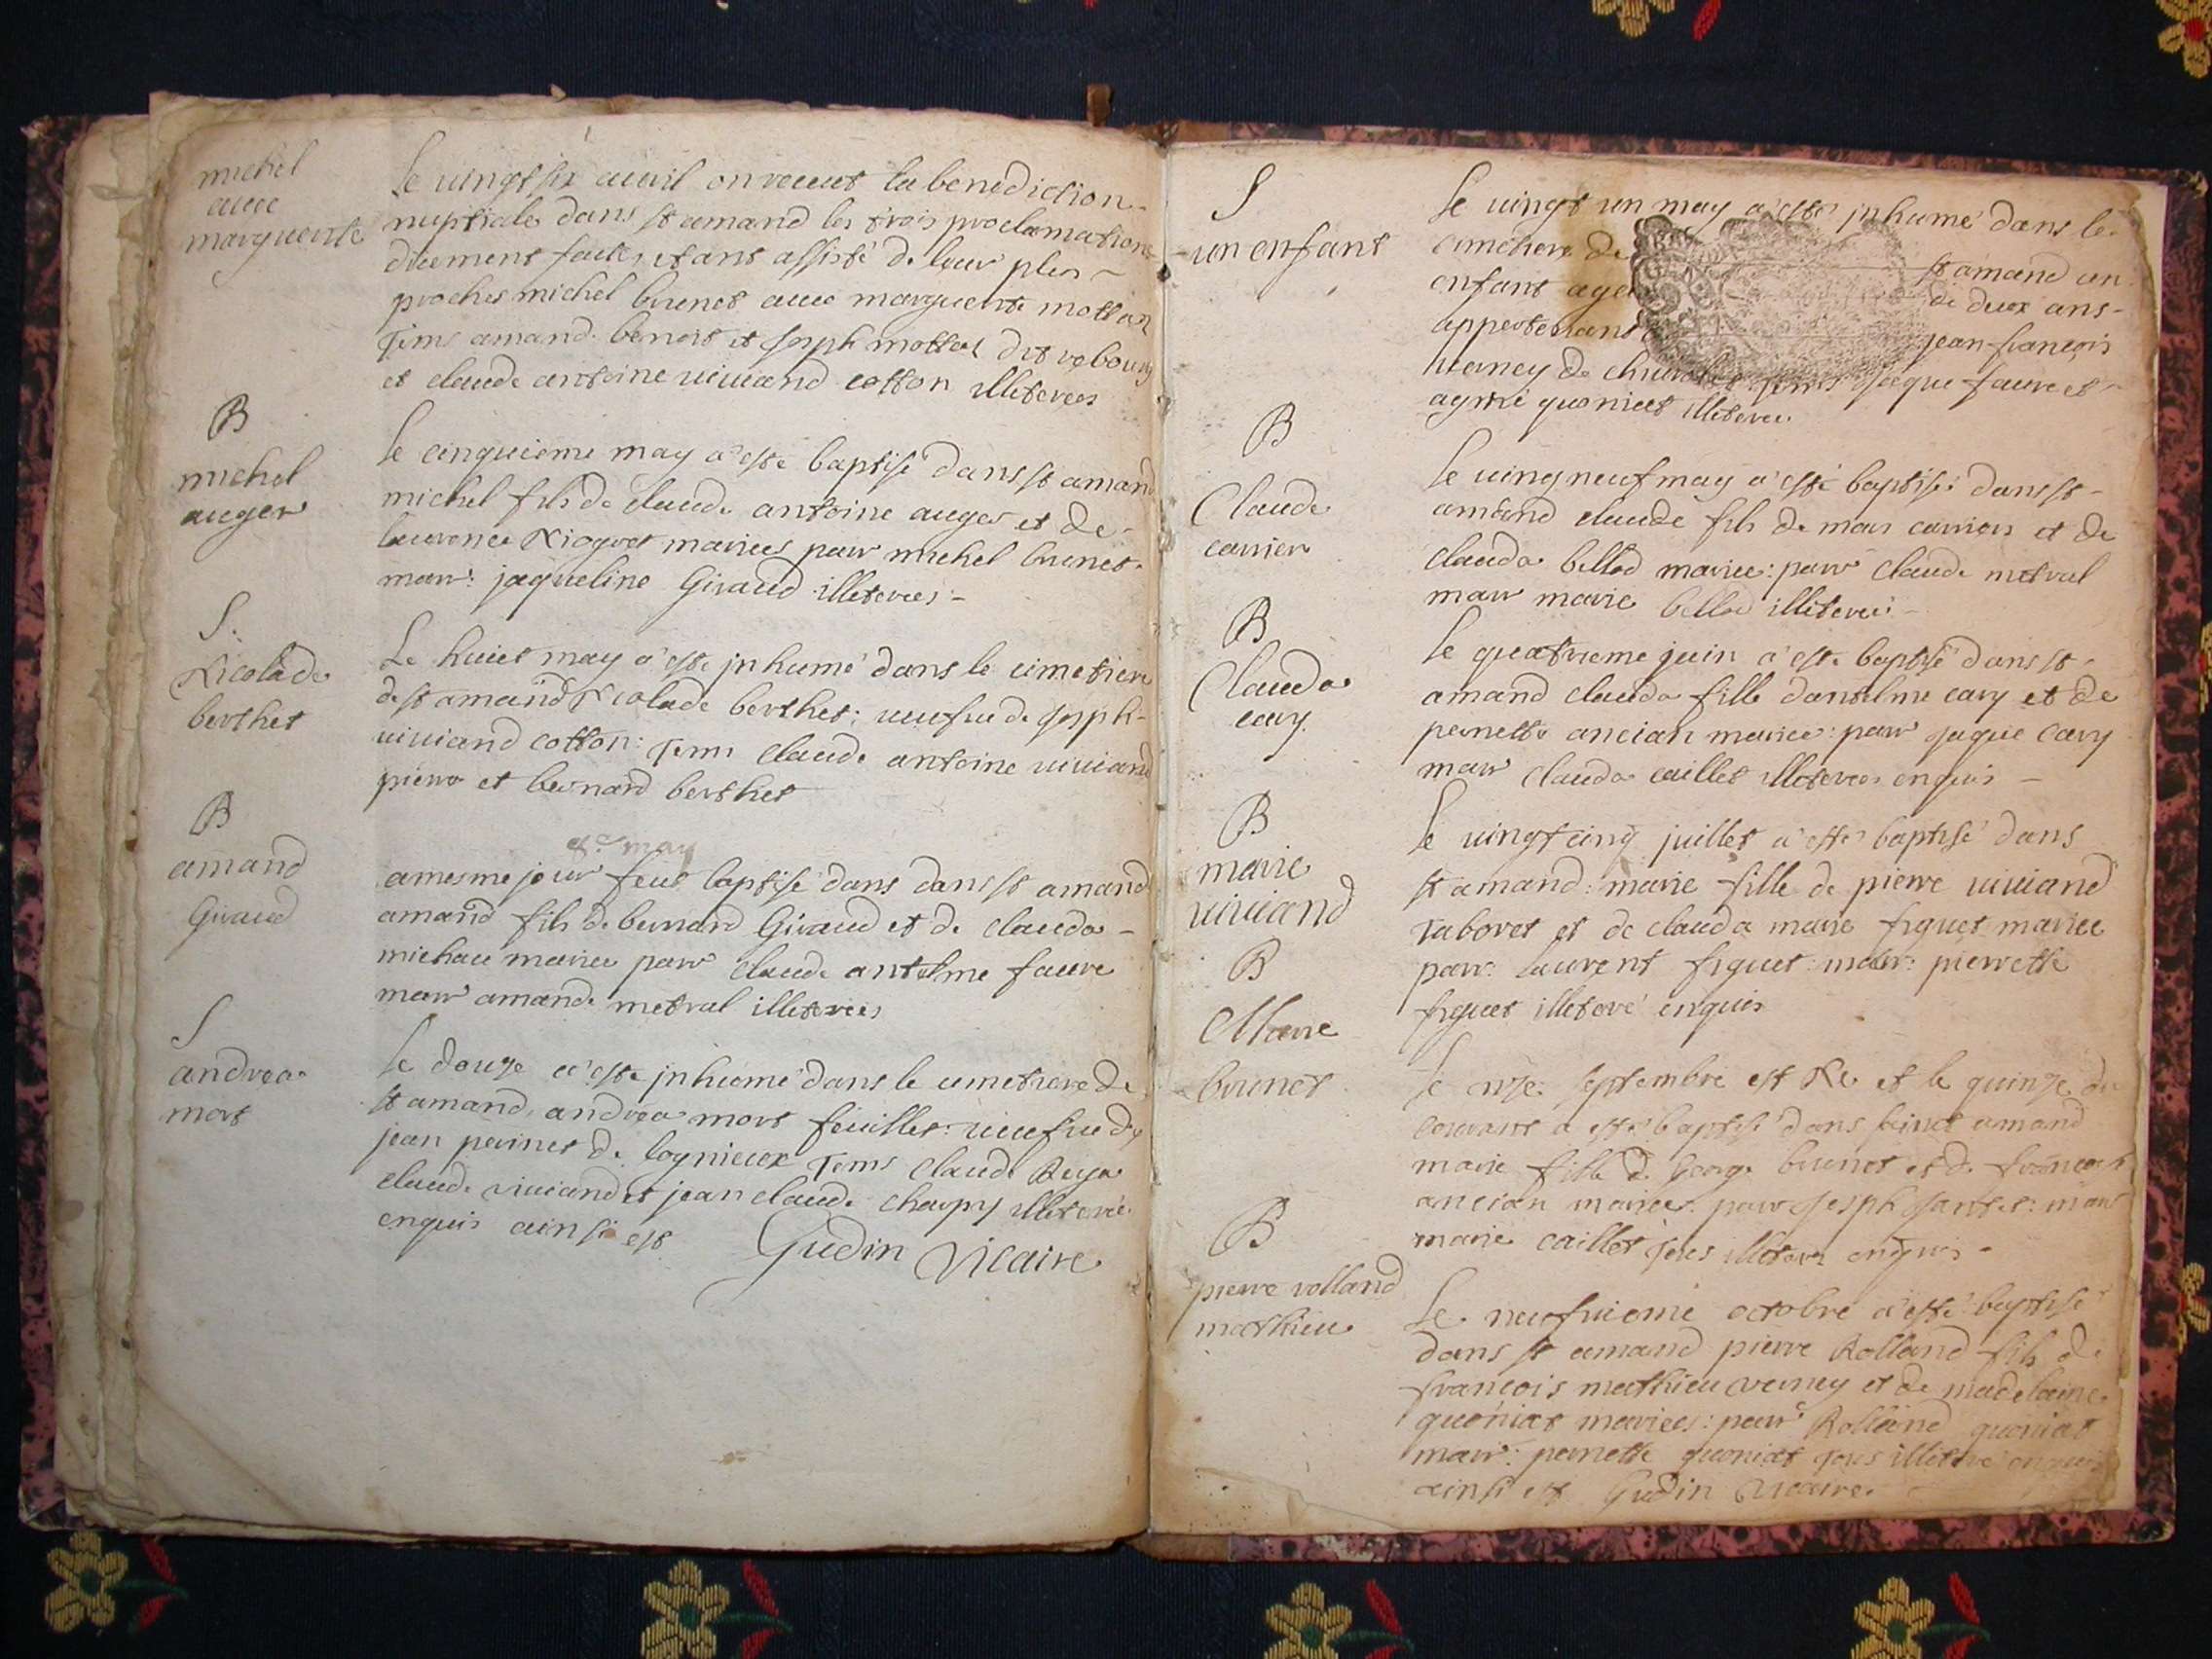 michel
avec
marguerite
Le vingt six avvril on receut la benediction
nuptiale dans st amand les trois proclamations
duement faites etans assisté de leur plus
proches michel brunet avec marguerite mottet
Tems amand benoit et joseph mottet dit
et claude antoine viviand cotton illeterees
B
michel
auger
le cinquieme may a esté baptisé dans st amand
michel fils de claude antoine auger et de
laurence mariees parr michel brunet
marr: jaqueline Giraud illeterees
S.
Nicolade
berthet
Le huict may a esté jnhumé dans le cimetiere
de st amand Nicolade berthet: veufve de joseph
viviand cotton: Tems claude antoine viviand
pierre et bernard berthet
B
amand
Giraud
may
a mesme jour feut baptisé dans dans st amand
amand fils de bernard Giraud et de clauda
michau mariee parr claude antelme faure
marr amande metral illeterees
S
andrea
mort
le douze a esté jnhumé dans le cimetiere de
st amand andrea mort feuillet veufve de
jean perinet de lognieux Tems claude
claude viviand et jean claude charpy illeteré
enquis ainsi est Gudin Vicaire
S
un enfant
le vingt un may a esté jnhumé dans le
cimetiere de st amand un
enfant agé de deux ans
appertenant jean francois
verney de Tems jaque faure et
aymé quoniet illeteree
B
Claude
carrier
le vingneuf may a esté baptisé dans st
amand claude fils de marc carrier et de
clauda bellod mariee: parr claude metral
marr marie bellod illeteree
B
Clauda
cavy
le quatrieme juin a esté baptisé dans st
amand clauda fille dantelme cavy et de
pernette ancian mariee: parr jaque cavy
marr clauda caillet illeterees enquis
B
marie
viviand
le vingtcinq juillet a esté baptisé dans
st amand: marie fille de pierre viviand
taboret et de clauda marie figuet mariee
parr: laurent figuet: marr: pierrette
figuet illeteré enquis
B
Marie
brunet
le septembre est Ne et le quinze du
courant a esté baptisé dans sainct amand
marie fille de George brunet et de francoise
ancian mariee: parr joseph jantet: marr
marie caillet illeteré enquis
B
pierre rolland
mathieu
Le neufvieme octobre a esté baptisé
dans st amand pierre Rolland fils de
françois mathieu verney et de madelaine
quoniat mariees: parr Rolland quoniat
marr: pernette quoniat tous illeteré enquis
ainsi est Gudin Vicaire.